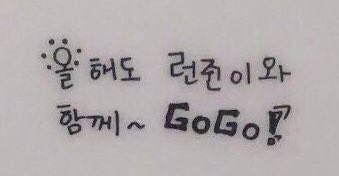 올해도 런쥔이와
함께~ GoGo!